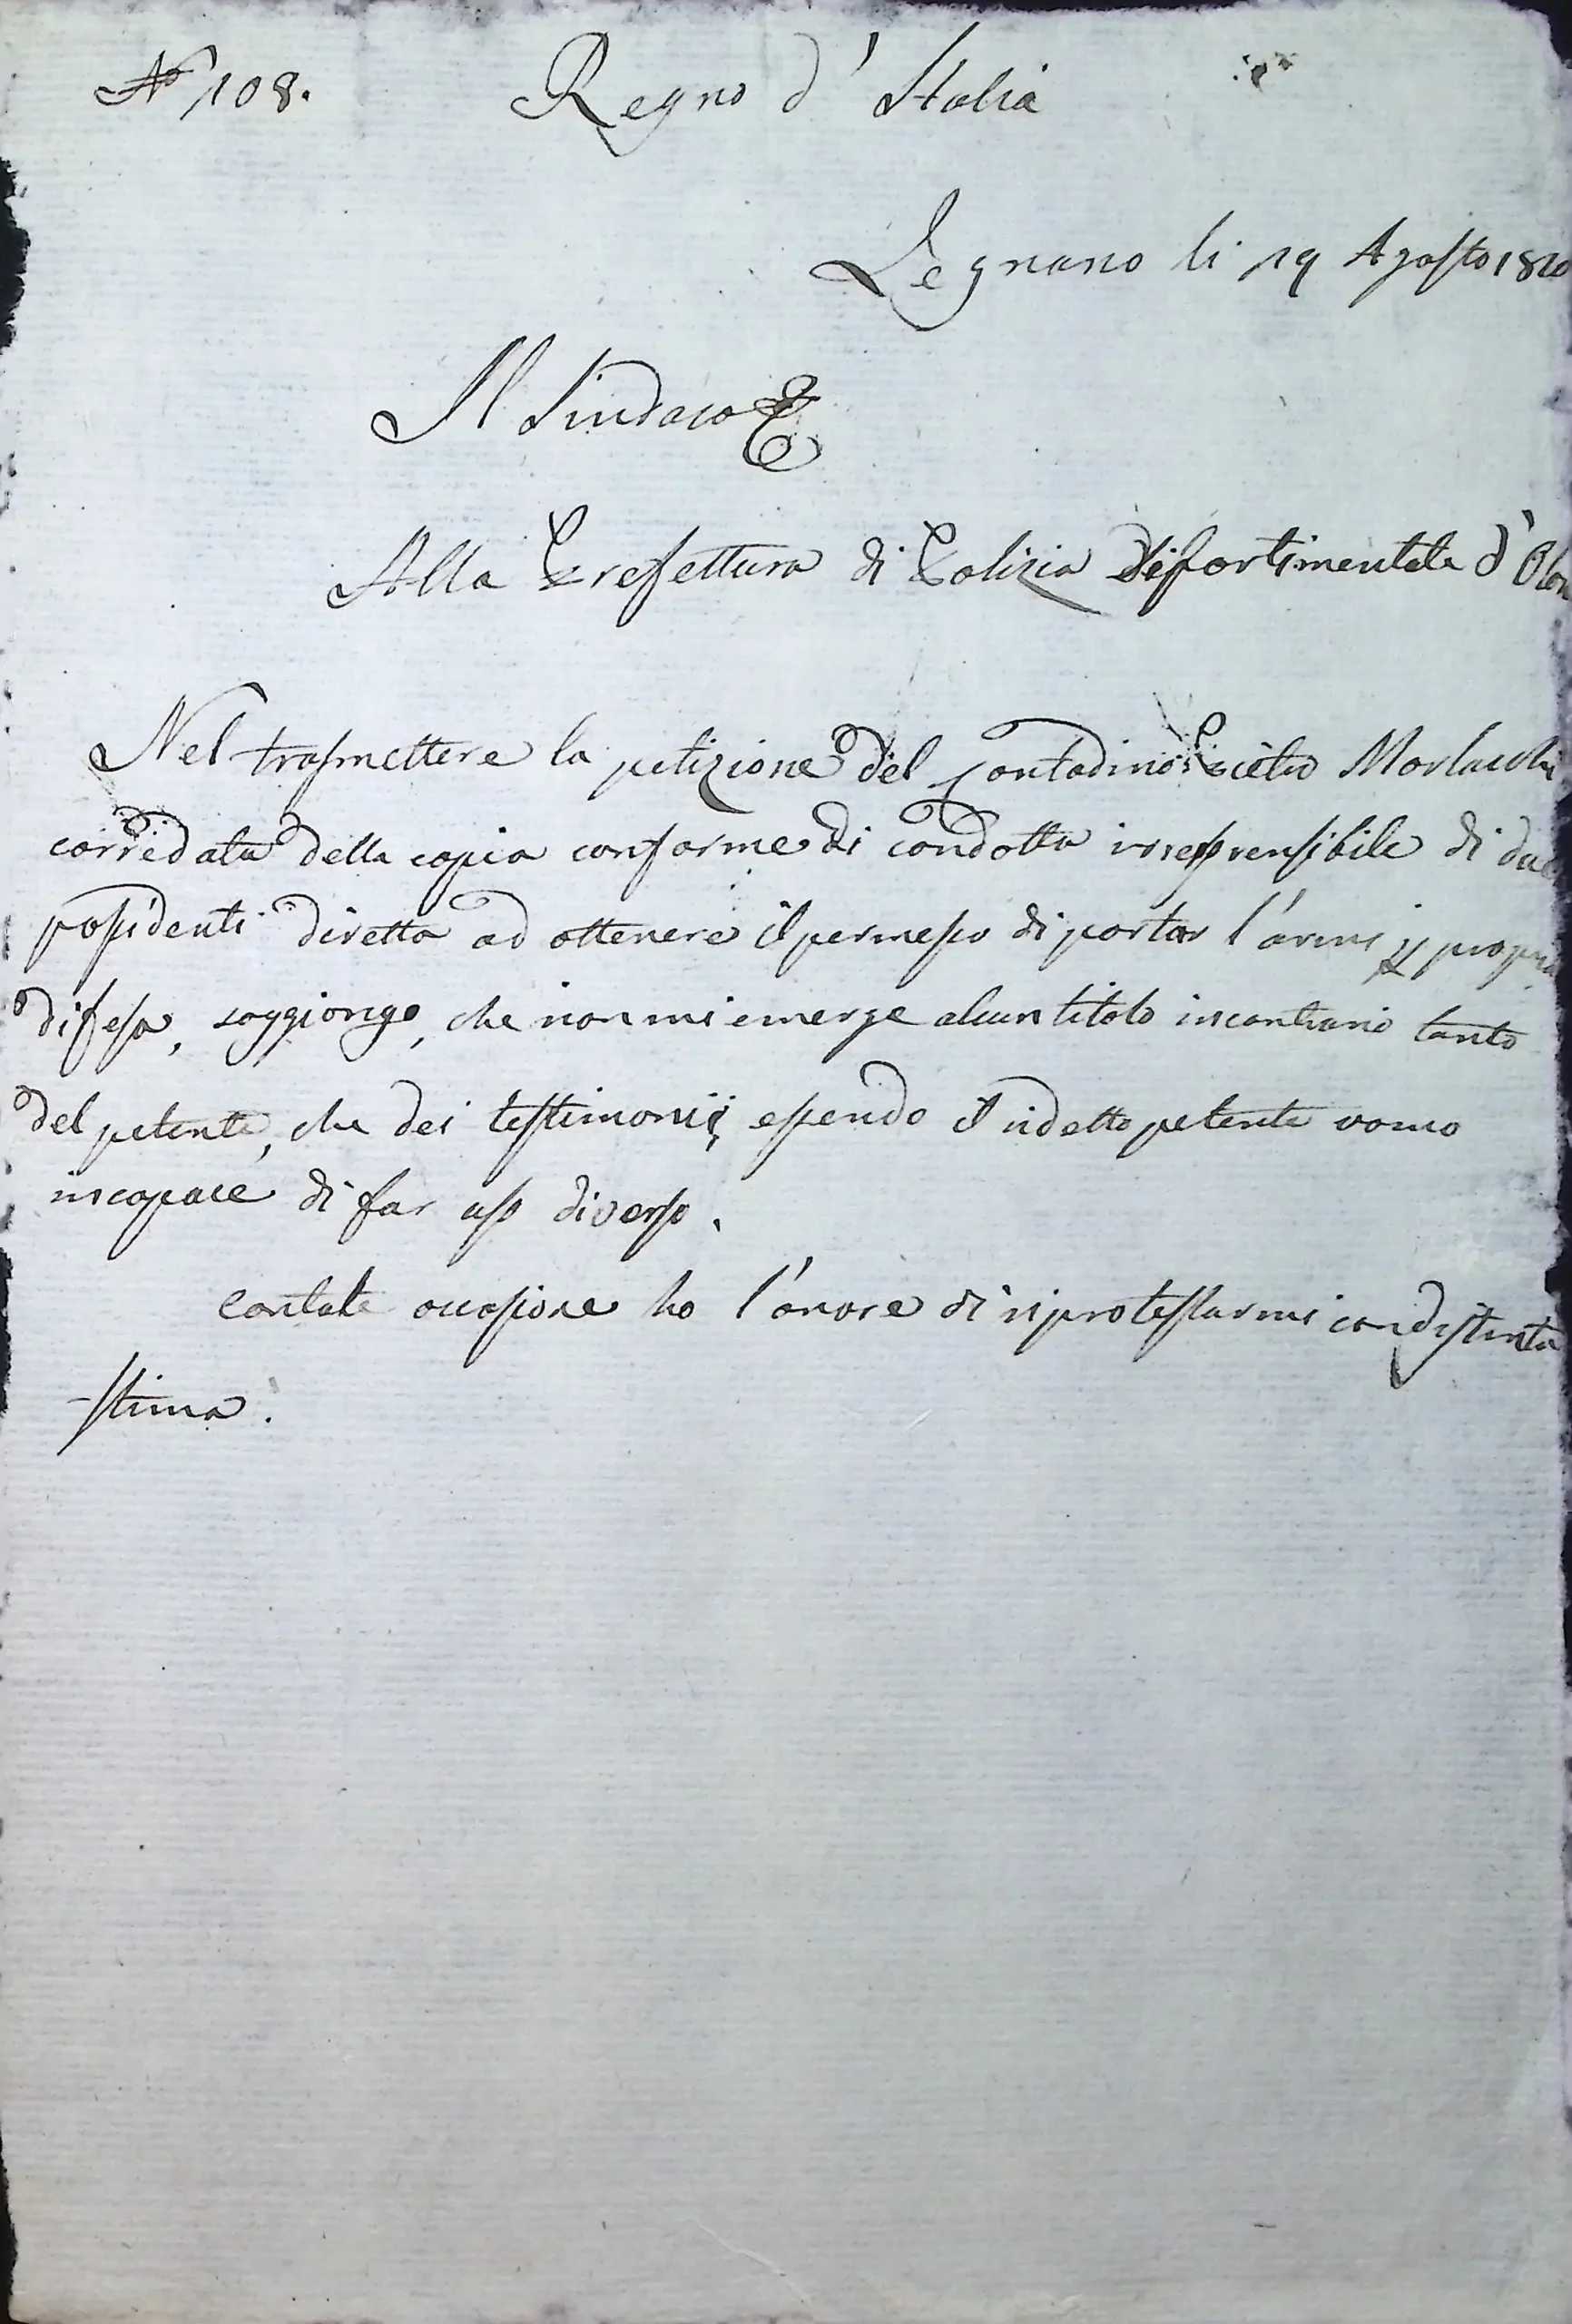 N° 108. Regno d'Italia
Legnano li 19 Agosto 1810
Il Sindaco
Alla Prefettura di Polizia d'Olon
Nel trasmettere la petizione del Contadino Pietro Morlacchi
corredata della copia conforme di condotta irreprensibile di due
possidenti diretta ad ottenere il permesso di portar l'armi propria
difesa, soggiongo, che non mi emerge alcun titolo incontrario tanto
del petente, che dei testimonij, essendo il ridetto petente uomo
incapace di far uso diverso.
Con tale occasione ho l'onore di riprotestarmi con distinta
stima.